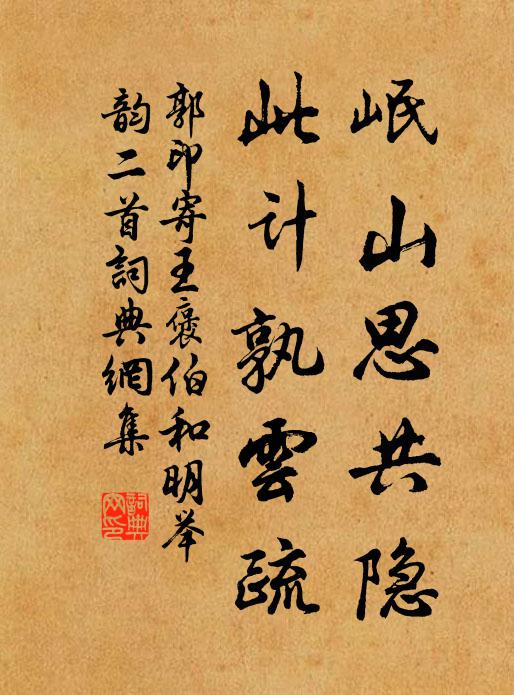 岷山思共隐
此计孰雲疏
郭印寄王褒伯和明举
韵二首詞典網集
詞典網印